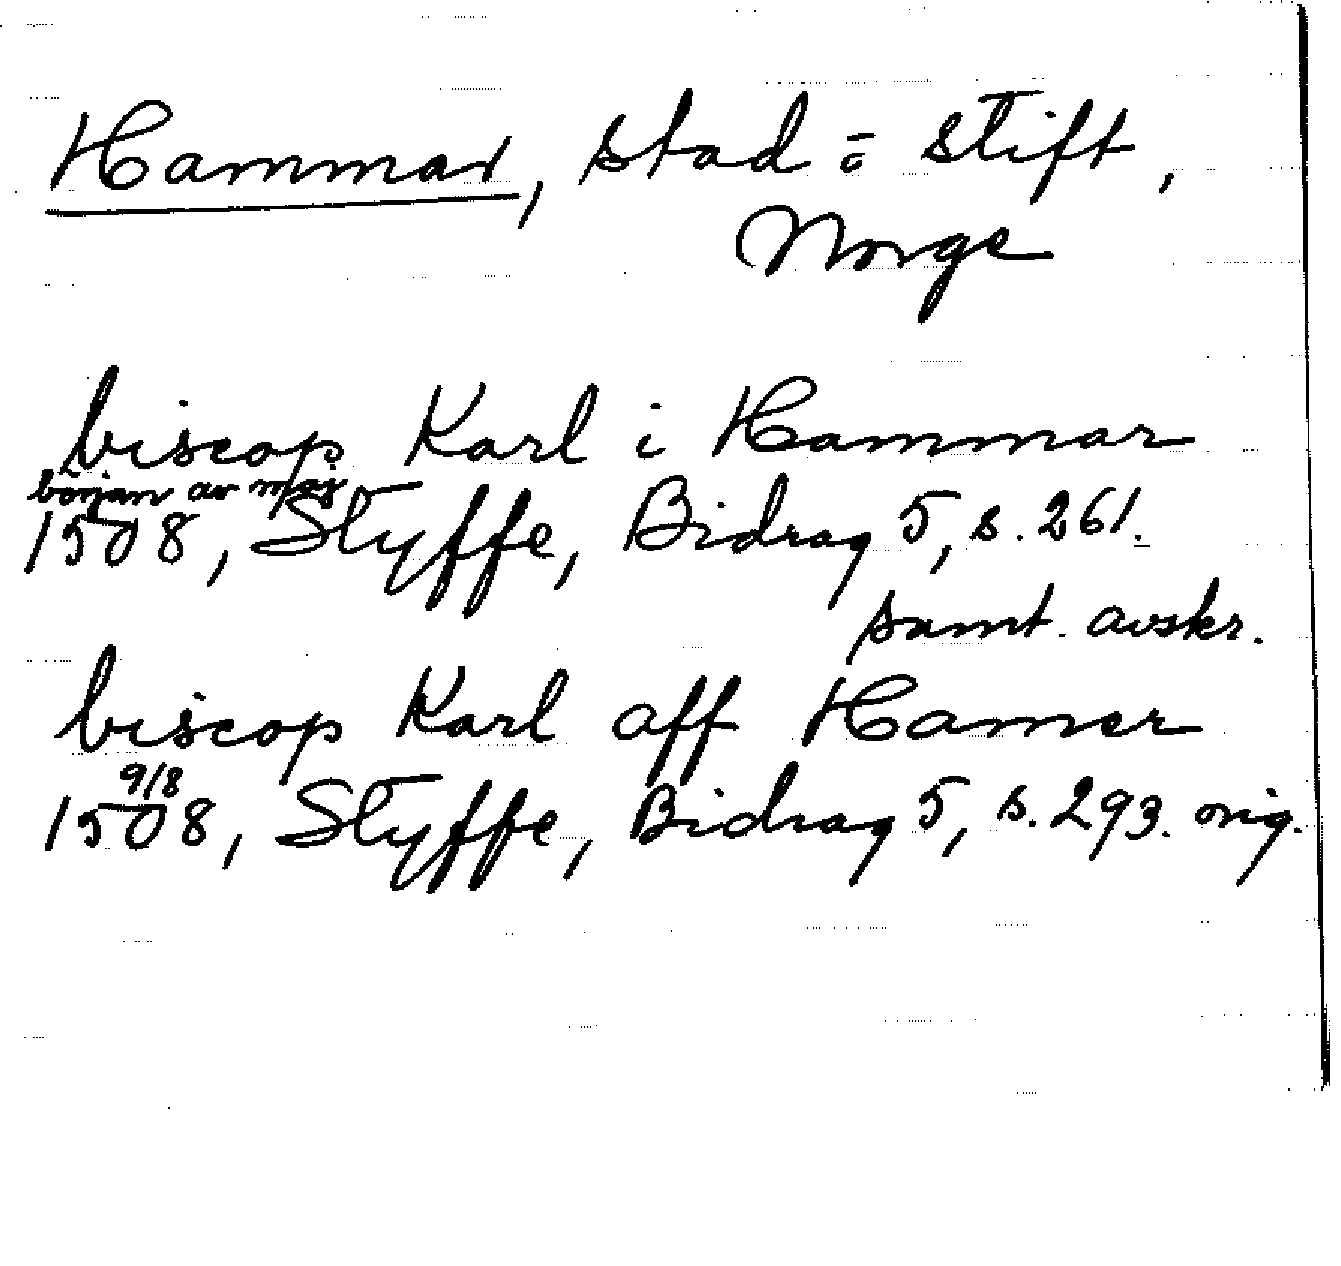 Hammar, stad o. stift,
Norge
biscop Karl i Hammar
början av maj
1508, Styffe, Bidrag 5, s. 261.
samt. avskr.
biscop Karl aff Hamer
9/8
1508, Styffe, Bidrag 5, s. 293. orig.